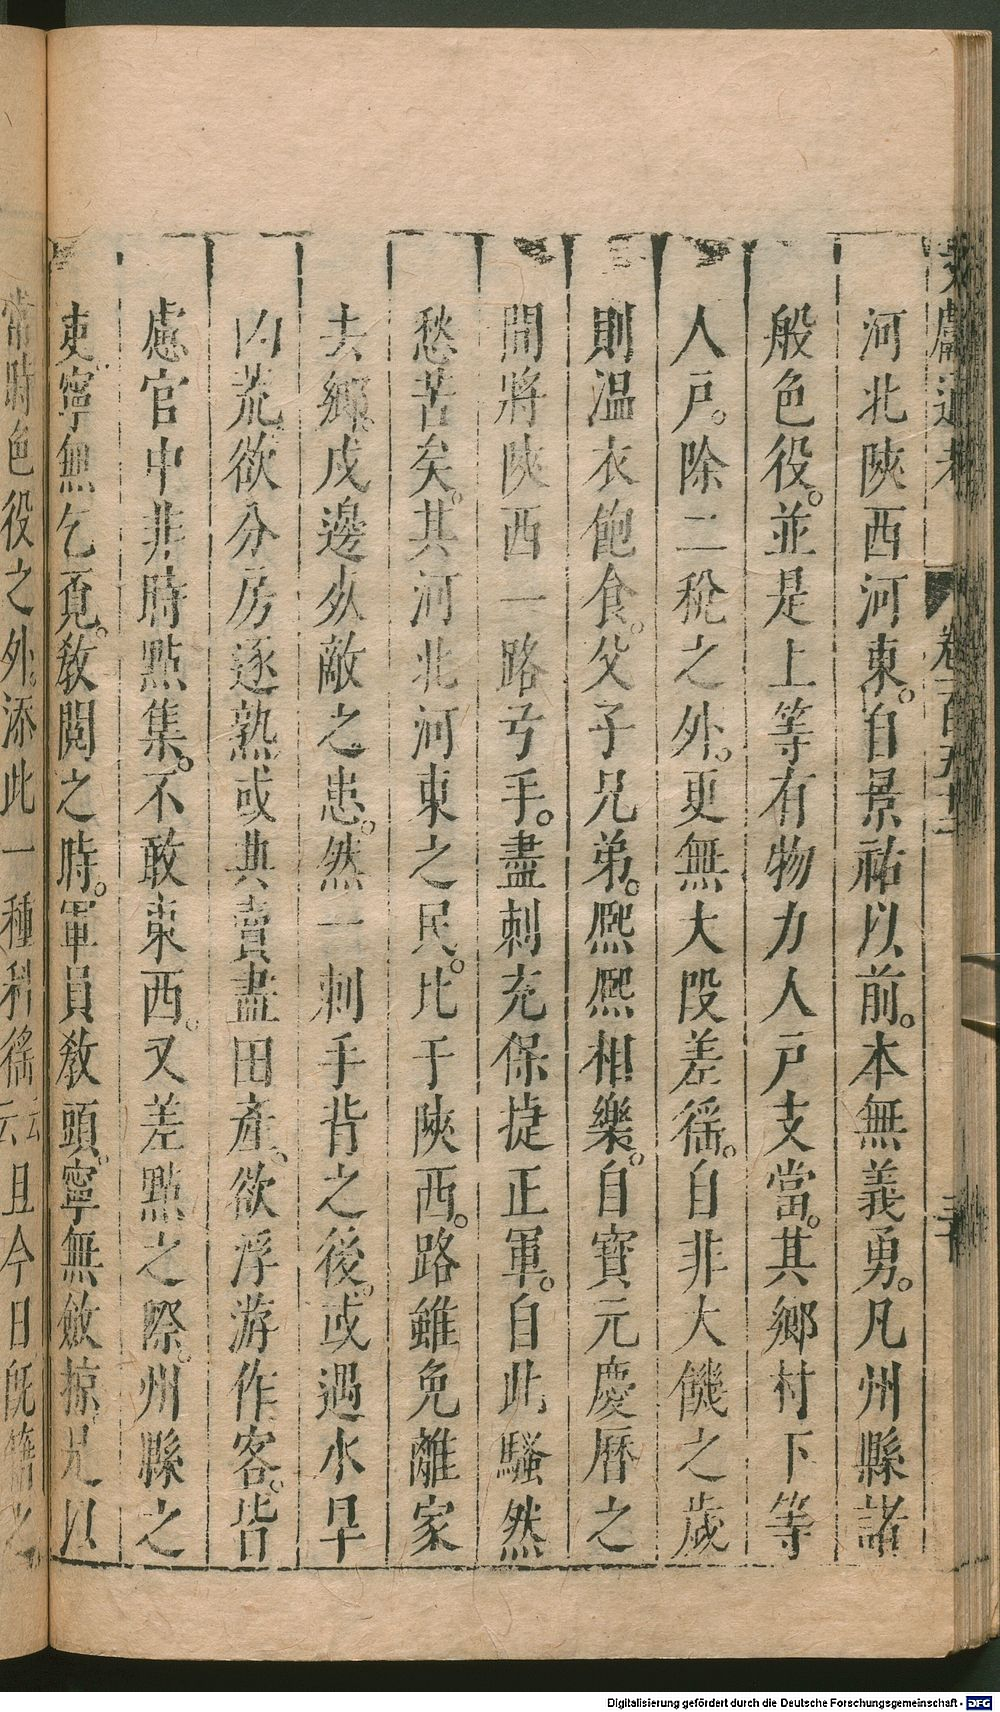 河北陝西河東。自景祐以前。本無義勇。凡州縣諸
般色役。並是上等有物力人戶支當。其鄉村下等
人戶。除二稅之外。更無大段差徭。自非大饑之歲
則溫衣飽食。父子兄弟。熈熈相樂。自寶元慶曆之
間將陝西一路弓手。盡刺充保捷正軍。自此騷然
愁苦矣。其河北河東之民。比于陝西。路雖免離家
去鄉。戍邊死敵之患。然一刺手背之後。或遇水旱
凶荒欲分房逐熟或典賣盡田產。欲浮游作客。皆
慮官中非時點集。不敢東西。又差點之際。州縣之
吏寧無乞覔。敎閱之時。軍員敎頭。寧無斂掠。是以
當時色役之外。添此一種科徭云云且今日旣籍之
文獻通考
卷一百五十
Digitalisierung gefördert durch die Deutsche Forschungsgemeinschaft - DFG